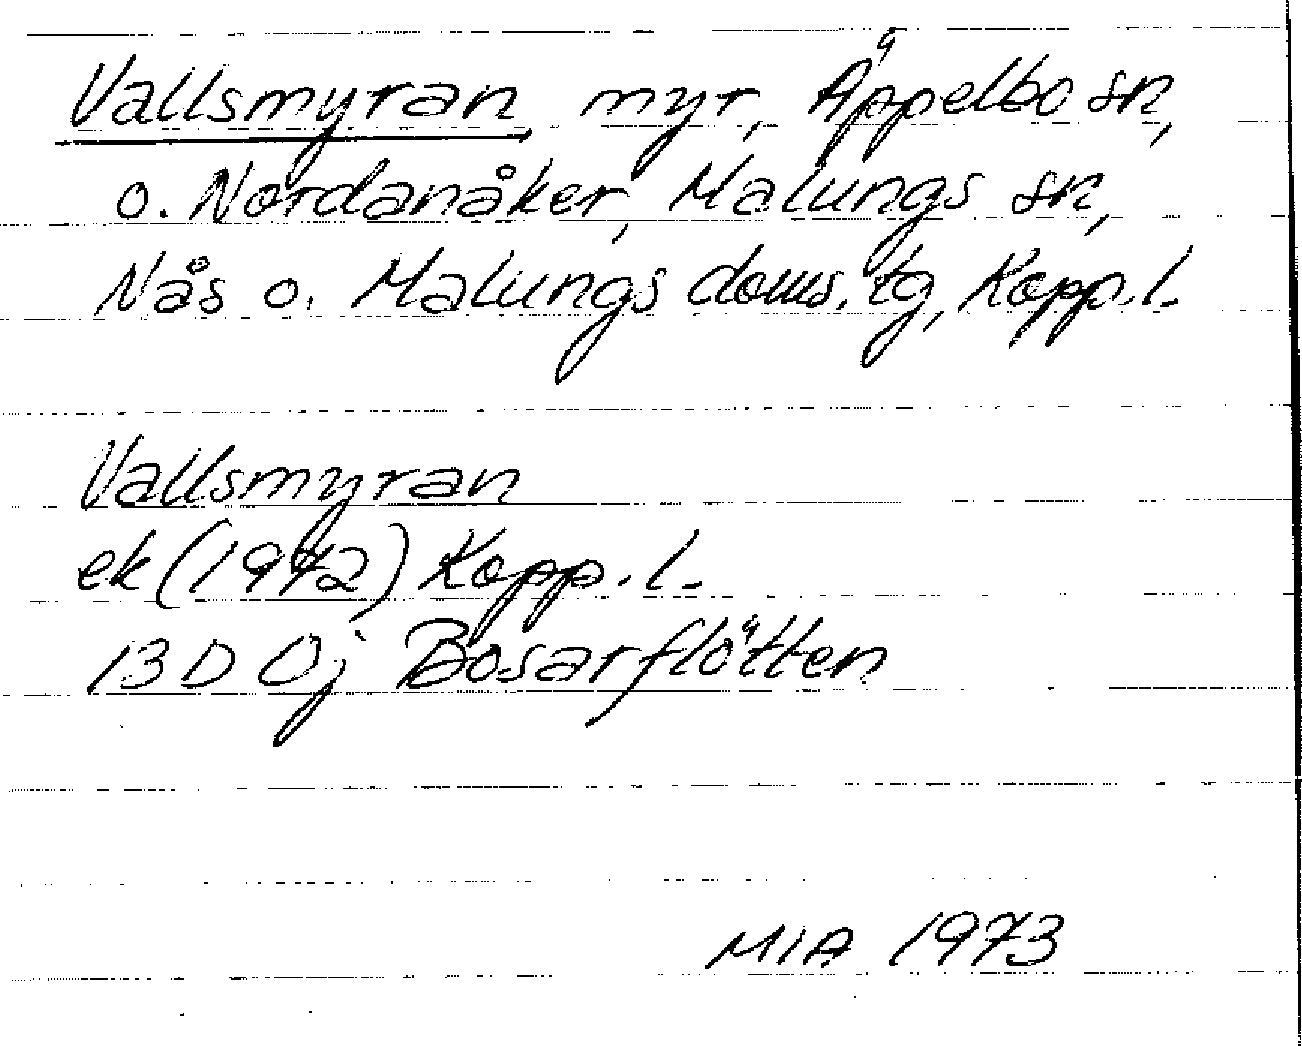 Vallsmyran, myr, Äppelbo sn,
o. Nordanåker, Malungs sn,
Nås o. Malungs doms. tg, Kopp. l.
Vallsmyran
ek (1972) Kopp. l.
13 D 0j Bosarflötten
MIA 1973